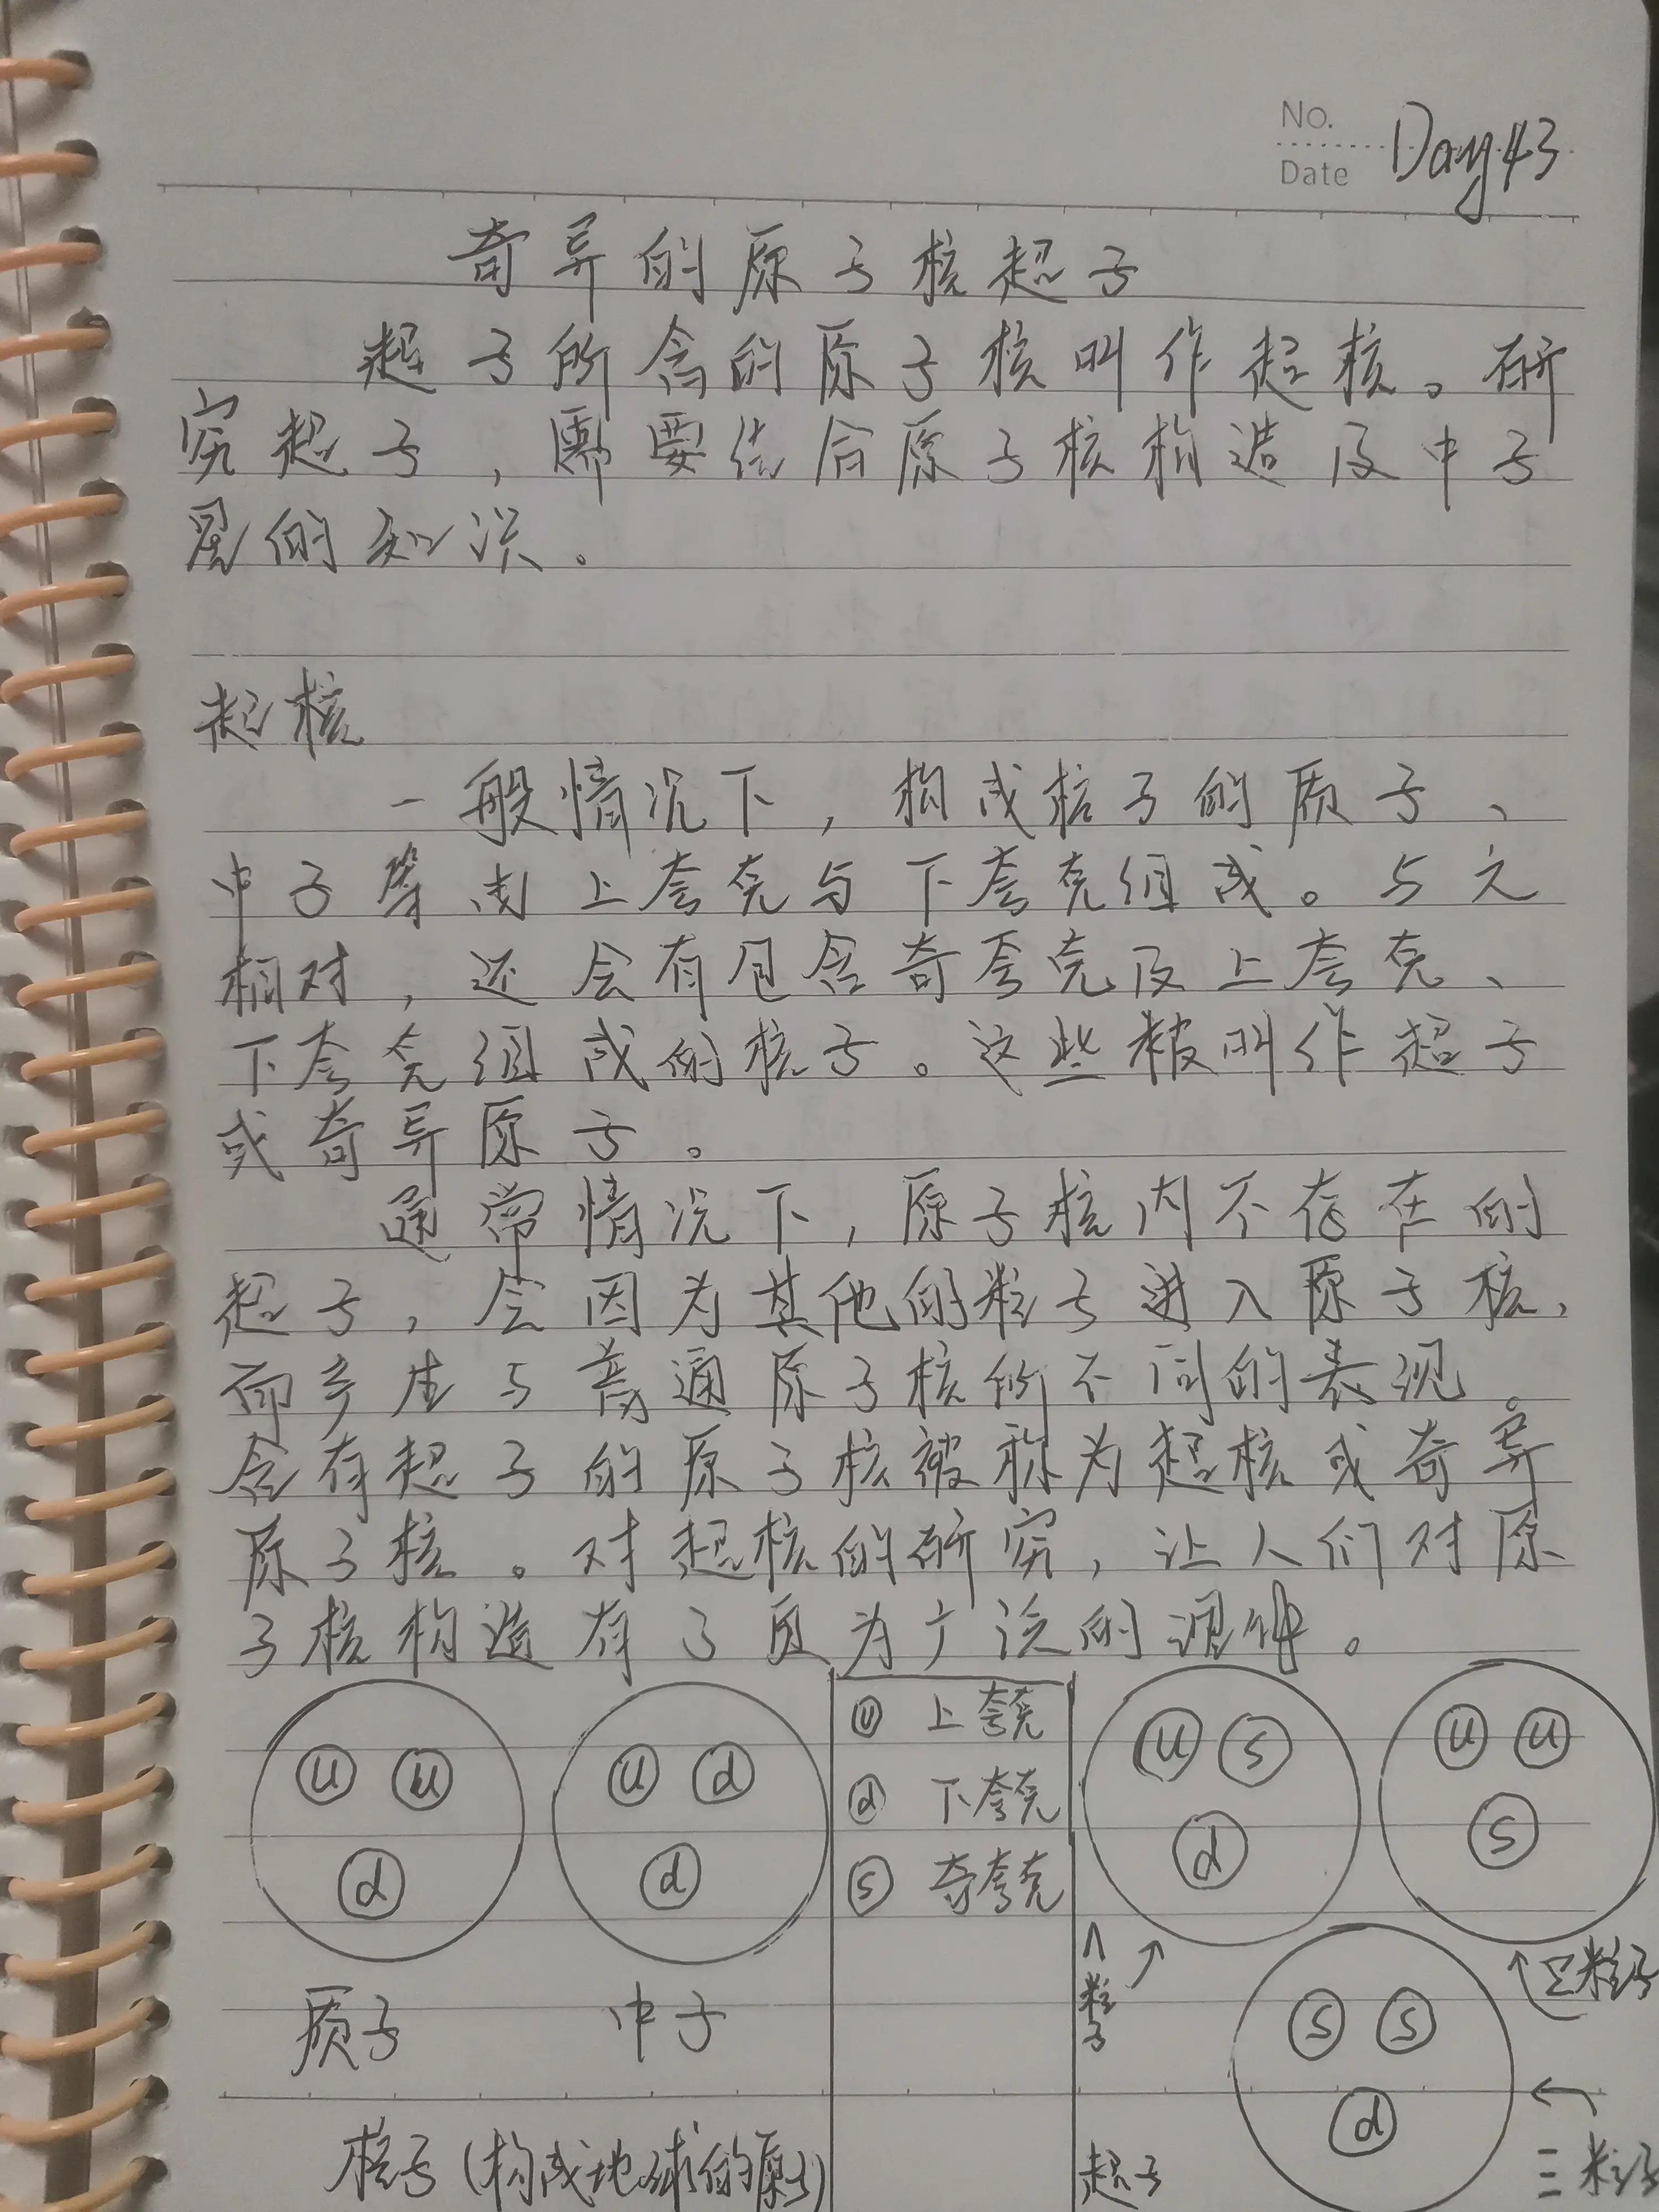 No.
Date Day43
奇异的原子核超子
超子所含的原子核叫作超核。研
究超子，需要结合原子核构造及中子
星的知识。
超核
一般情况下，构成核子的质子、
中子等由上夸克与下夸克组成。与之
相对，还会有包含奇夸克及上夸克、
下夸克组成的核子。这些被叫作超子
或奇异原子。
通常情况下，原子核内不存在的
超子，会因为其他的粒子进入原子核，
而产生与普通原子核所不同的表现。
含有超子的原子核被称为超核或奇异
原子核。对超核的研究，让人们对原
子核构造有了更为广泛的理解。
u u d
质子
u d d
中子
核子(构成地球的原子)
u 上夸克
d 下夸克
s 奇夸克
u s d
Λ粒子
u u s
Σ粒子
s s d
Ξ粒子
超子